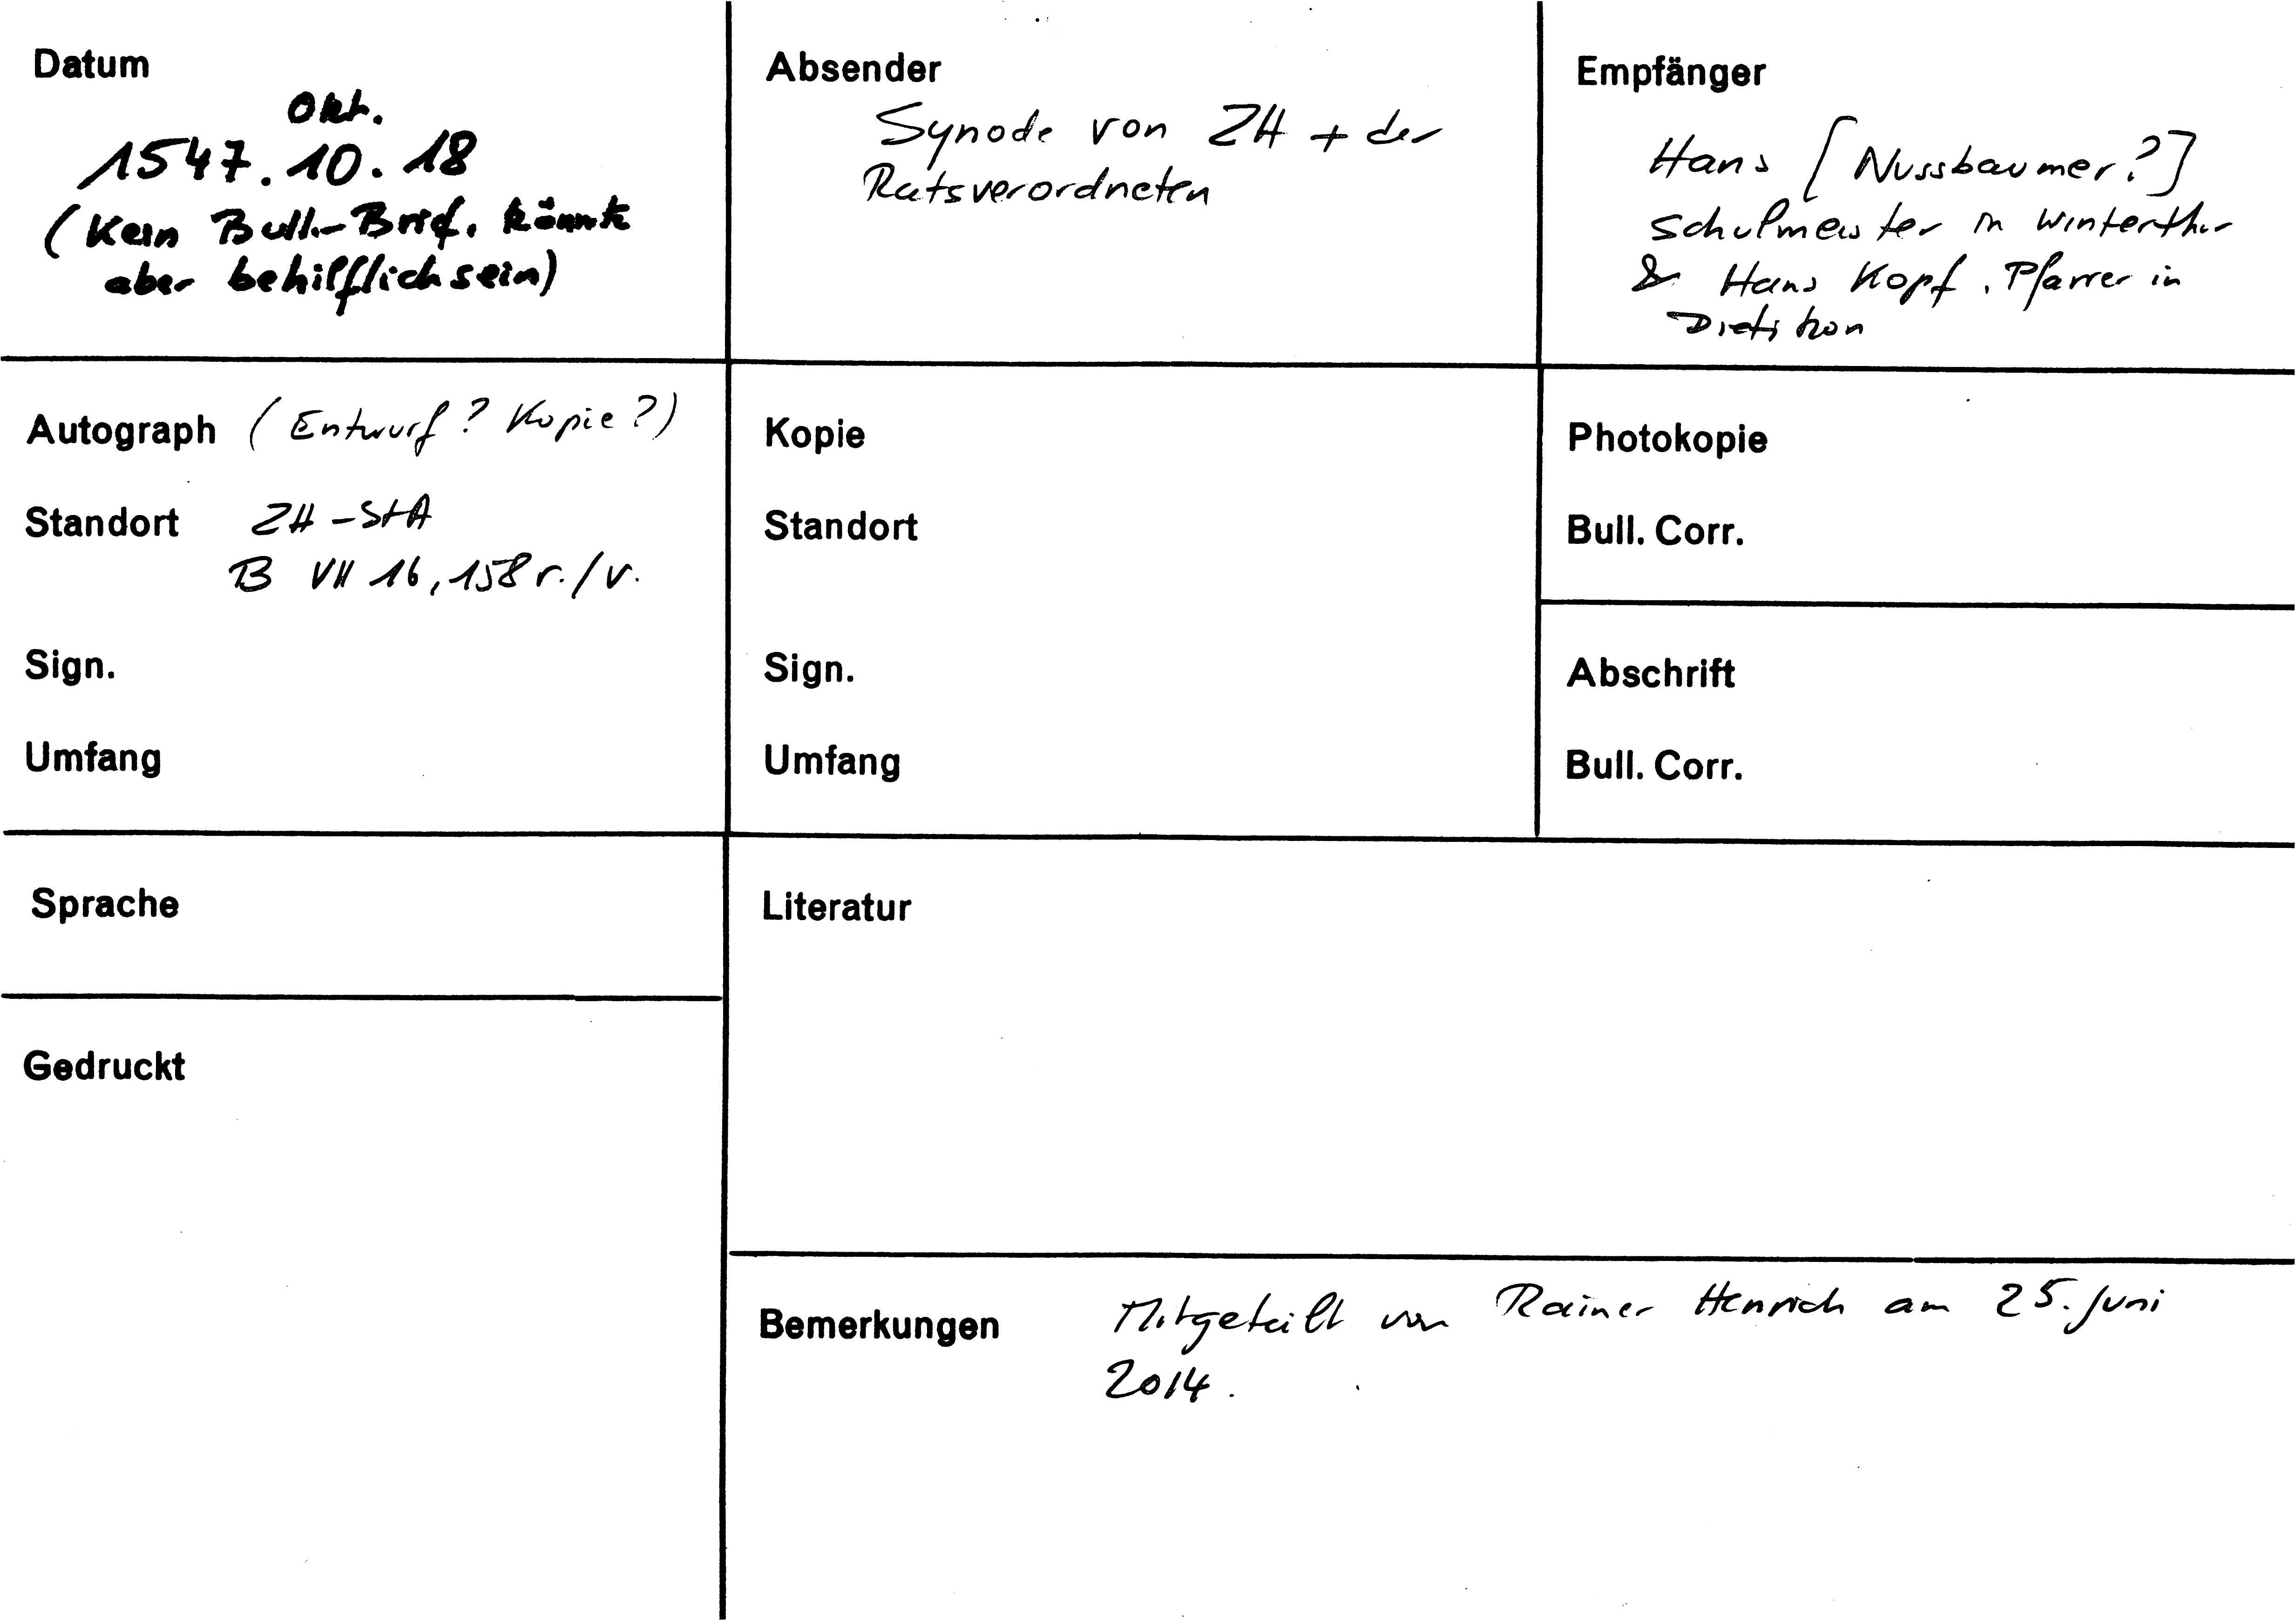 Datum
Okt.
1547.10.18
(Kein Bull.-Brief. könnte
aber behilflich sein)
Absender
Synode von ZH + der
Ratsverordneten
Empfänger
Hans [Nussbaumer?]
Schulmeister in Winterthur
& Hans Kopf, Pfarrer in
Dietikon
Autograph (Entwurf? Kopie?)
Standort ZH-StA
B VII 16, 158 r./v.
Sign.
Umfang
Kopie
Standort
Sign.
Umfang
Photokopie
Bull. Corr.
Abschrift
Bull. Corr.
Sprache
Gedruckt
Literatur
Bemerkungen Mitgeteilt von Rainer Henrich am 25. Juni
2014.